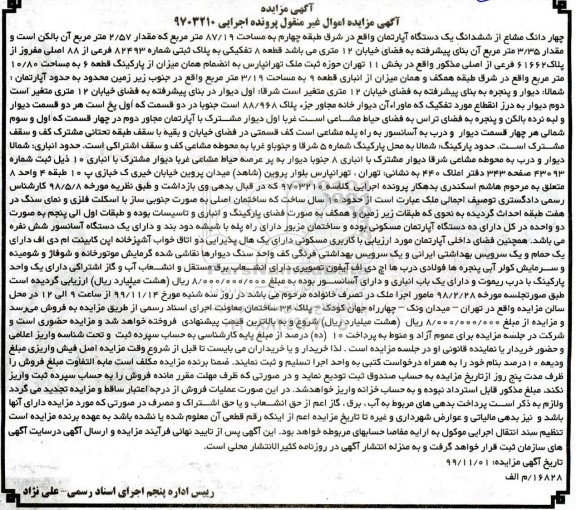 آگهی مزایده
آگهی مزایده اموال غیر منقول پرونده اجرایی ۹۷۰۳۲۱۰
چهار دانگ مشاع از ششدانگ یک دستگاه آپارتمان واقع در شرق طبقه چهارم به مساحت ۸۷/۱۹ متر مربع که مقدار ۲/۵۷ متر مربع آن بالکن است و
مقدار ۳/۳۵ متر مربع آن بنای پیشرفته به فضای خیابان ۱۲ متری می باشد قطعه ۸ تفکیکی به پلاک ثبتی شماره ۸۲۴۹۳ فرعی از ۸۸ اصلی مفروز از
پلاک ۶۱۶۶۲ فرعی از اصلی مذکور واقع در بخش ۱۱ تهران حوزه ثبت ملک تهرانپارس به انضمام همان میزان از پارکینگ قطعه ۶ به مساحت ۱۰/۸۰
متر مربع واقع در شرق طبقه همکف و همان میزان از انباری قطعه ۹ به مساحت ۳/۱۹ متر مربع واقع در جنوب زیر زمین محدود به حدود آپارتمان :
شمالا: دیوار و پنجره به بنای پیشرفته به فضای خیابان ۱۲ متری متغیر است شرقا: اول دیوار در بنای پیشرفته به فضای خیابان ۱۲ متری متغیر است
دوم دیوار به درز انقطاع مورد تفکیک که ماوراء آن دیوار خانه مجاور جزء پلاک ۸۸/۹۶۸ است جنوبا در دو قسمت که اول پخ است هر دو قسمت دیوار
و لبه نرده بالکن و پنجره به فضای تراس به فضای حیاط مشاعی است غربا اول دیوار مشترک با آپارتمان مجاور دوم در چهار قسمت که اول و سوم
شمالی هر چهار قسمت دیوار و درب به آسانسور به راه پله مشاعی است کف قسمتی در فضای خیابان و بقیه با سقف طبقه تحتانی مشترک کف و سقف
مشترک است. حدود پارکینگ: شمالا به محل پارکینگ شماره ۵ شرقا و جنوباو غربا به محوطه مشاعی کف و سقف اشتراکی است. حدود انباری: شمالا
دیوار و درب به محوطه مشاعی شرقا دیوار مشترک با انباری ۸ جنوبا دیوار به پر عرصه حیاط مشاعی غربا دیوار مشترک با انباری ۱۰ ذیل ثبت شماره
۴۳۰۹۳ صفحه ۳۴۳ دفتر املاک ۴۴۰ به نشانی: تهران ، تهرانپارس بلوار پروین (شاهد) میدان پروین خیابان خیری ک خبازی پ ۱۰ طبقه ۴ واحد ۸
متعلق به مرحوم هاشم اسکندری بدهکار پرونده اجرایی کلاسه ۹۷۰۳۲۱۰ که در قبال بدهی وی بازداشت و طبق نظریه مورخه ۹۸/۵/۸ کارشناس
رسمی دادگستری توصیف اجمالی ملک عبارت است از حدود ۱۰ سال ساخت که ساختمان اصلی به صورت جنوبی ساز با اسکلت فلزی و نمای سنگ در
هفت طبقه احداث گردیده به نحوی که طبقات زیر زمین و همکف به صورت فضای پارکینگ و انباری و تاسیسات بوده و طبقات اول الی پنجم به صورت
دو واحده در کل دارای ده دستگاه آپارتمان مسکونی بوده و ساختمان مزبور دارای راه پله با شیشه دود بند و دارای یک دستگاه آسانسور شش نفره
می باشد. همچنین فضای داخلی آپارتمان مورد ارزیابی با کاربری مسکونی دارای یک هال پذیرایی دو اتاق خواب آشپزخانه اپن کابینت ام دی اف دارای
یک حمام و یک سرویس بهداشتی ایرانی و یک سرویس بهداشتی فرنگی کف واحد سنگ دیوارها نقاشی شده گرمایش موتورخانه و شوفاژ و شومینه
و سرمایش کولر آبی پنجره ها فولادی درب ها اچ دی اف آیفون تصویری دارای انشعاب برق مستقل و انشعاب آب و گاز اشتراکی دارای یک واحد
پارکینگ با درب ریموت و دارای یک باب انباری و دارای آسانسور بوده به مبلغ ۸/۰۰۰/۰۰۰/۰۰۰ ریال (هشت میلیارد ریال) ارزیابی گردیده است
طبق صورتجلسه مورخه ۹۸/۲/۲۸ مامور اجرا ملک در تصرف خانواده مرحوم می باشد در روز سه شنبه مورخ ۹۹/۱۱/۱۴ از ساعت ۹ الی ۱۲ در محل
سالن مزایده واقع در تهران – میدان ونک – چهارراه جهان کودک – پلاک ۲۴ ساختمان معاونت اجرای اسناد رسمی از طریق مزایده به فروش می‌رسد
و مزایده از مبلغ ۸/۰۰۰/۰۰۰/۰۰۰ ریال (هشت میلیارد ریال) شروع و به بالاترین قیمت پیشنهادی فروخته خواهد شد و مزایده حضوری است و
شرکت در جلسه مزایده برای عموم آزاد و منوط به پرداخت ۱۰ (ده) درصد از مبلغ پایه کارشناسی به حساب سپرده ثبت و تحت شناسه واریز اعلامی
و حضور خریدار یا نماینده قانونی او در جلسه مزایده است . لذا خریدار و یا خریداران می بایست تا قبل از شروع وقت مزایده اصل فیش واریزی مبلغ
ودیعه ۱۰ درصد بنام خود را به همراه درخواست کتبی به واحد اجرا تسلیم و ثبت نمایند. ضمنا برنده مزایده مکلف است مابه التفاوت مبلغ فروش را
ظرف مدت پنج روز از تاریخ مزایده به حساب صندوق ثبت تودیع نماید و در صورتی که ظرف مهلت مقرر مانده فروش را به حساب سپرده ثبت واریز
نکند مبلغ مذکور قابل استرداد نبوده و به حساب خزانه واریز خواهدشد. در این صورت عملیات فروش از درجه اعتبار ساقط و مزایده تجدید می گردد
ولازم به ذکر است پرداخت بدهی های مربوط به آب، برق ، گاز اعم از حق انشعاب و یا حق اشتراک و مصرف در صورتی که مورد مزایده دارای آنها
باشد و نیز بدهی مالیاتی و عوارض شهرداری و غیره تا تاریخ مزایده اعم از اینکه رقم قطعی آن معلوم شده یا نشده باشد به عهده برنده مزایده است
تنظیم سند انتقال اجرایی موکول به ارایه مفاصا حسابهای مربوطه خواهد بود. این آگهی پس از تایید نهائی فرآیند مزایده و ارسال آگهی درسایت آگهی
های سازمان ثبت قرار خواهد گرفت و به منزله انتشار آگهی در روزنامه کثیرالانتشار محلی است.
تاریخ آگهی مزایده: ۹۹/۱۱/۰۱
۱۶۸۲۸/م الف
رییس اداره پنجم اجرای اسناد رسمی– علی نژاد